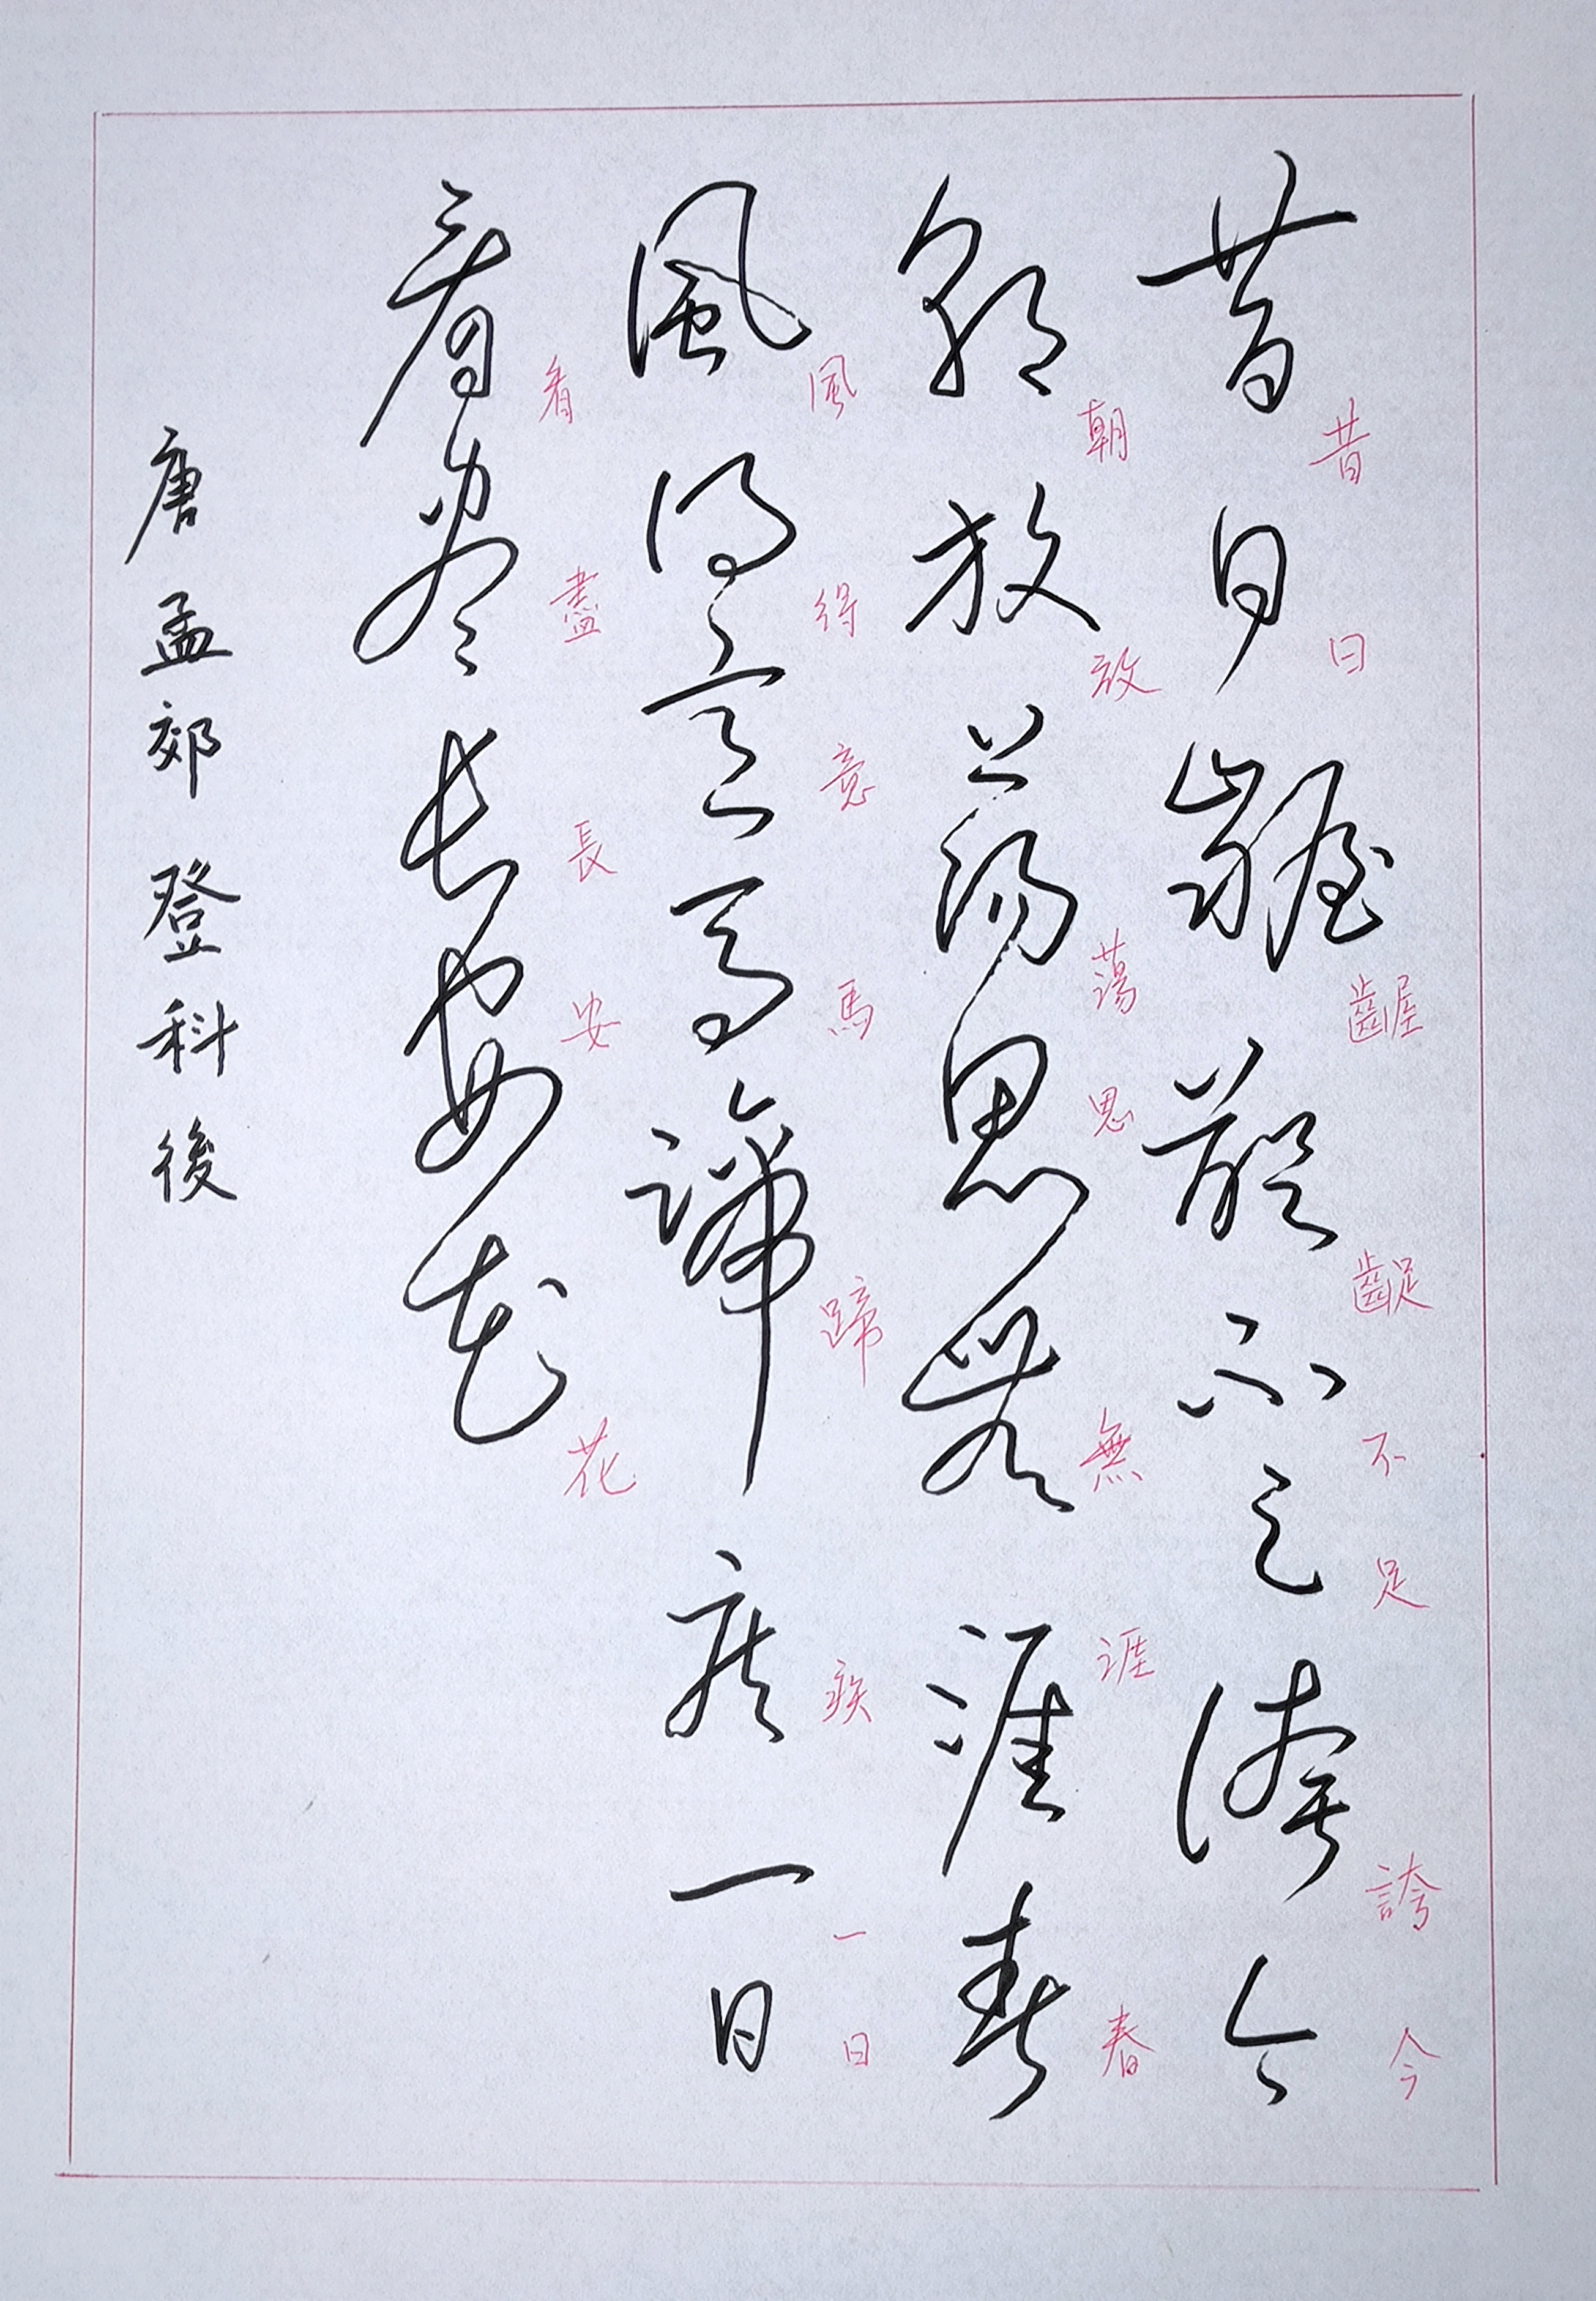 昔日齷齪不足誇今
昔日齷齪不足誇今
朝放蕩思無涯春
朝放蕩思無涯春
風得意馬蹄疾一日
風得意馬蹄疾一日
看盡長安花
看盡長安花
唐孟郊登科後